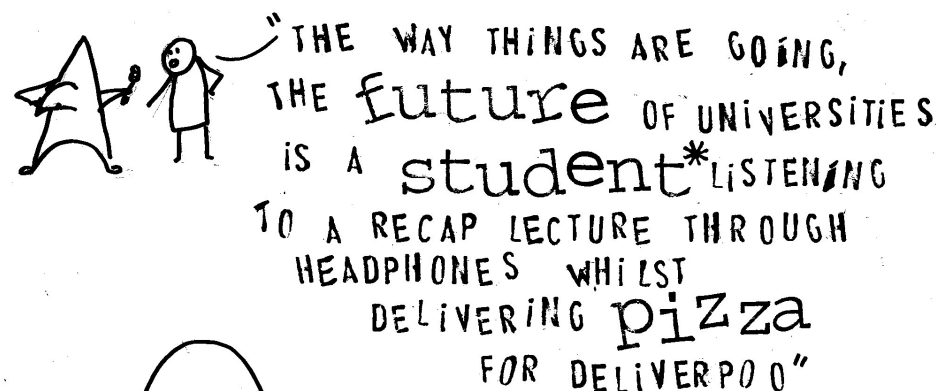 "THE WAY THINGS ARE GOING,
THE future OF UNIVERSITIES
IS A student* LISTENING
TO A RECAP LECTURE THROUGH
HEADPHONES WHILST
DELIVERING pizza
FOR DELIVERPOO"